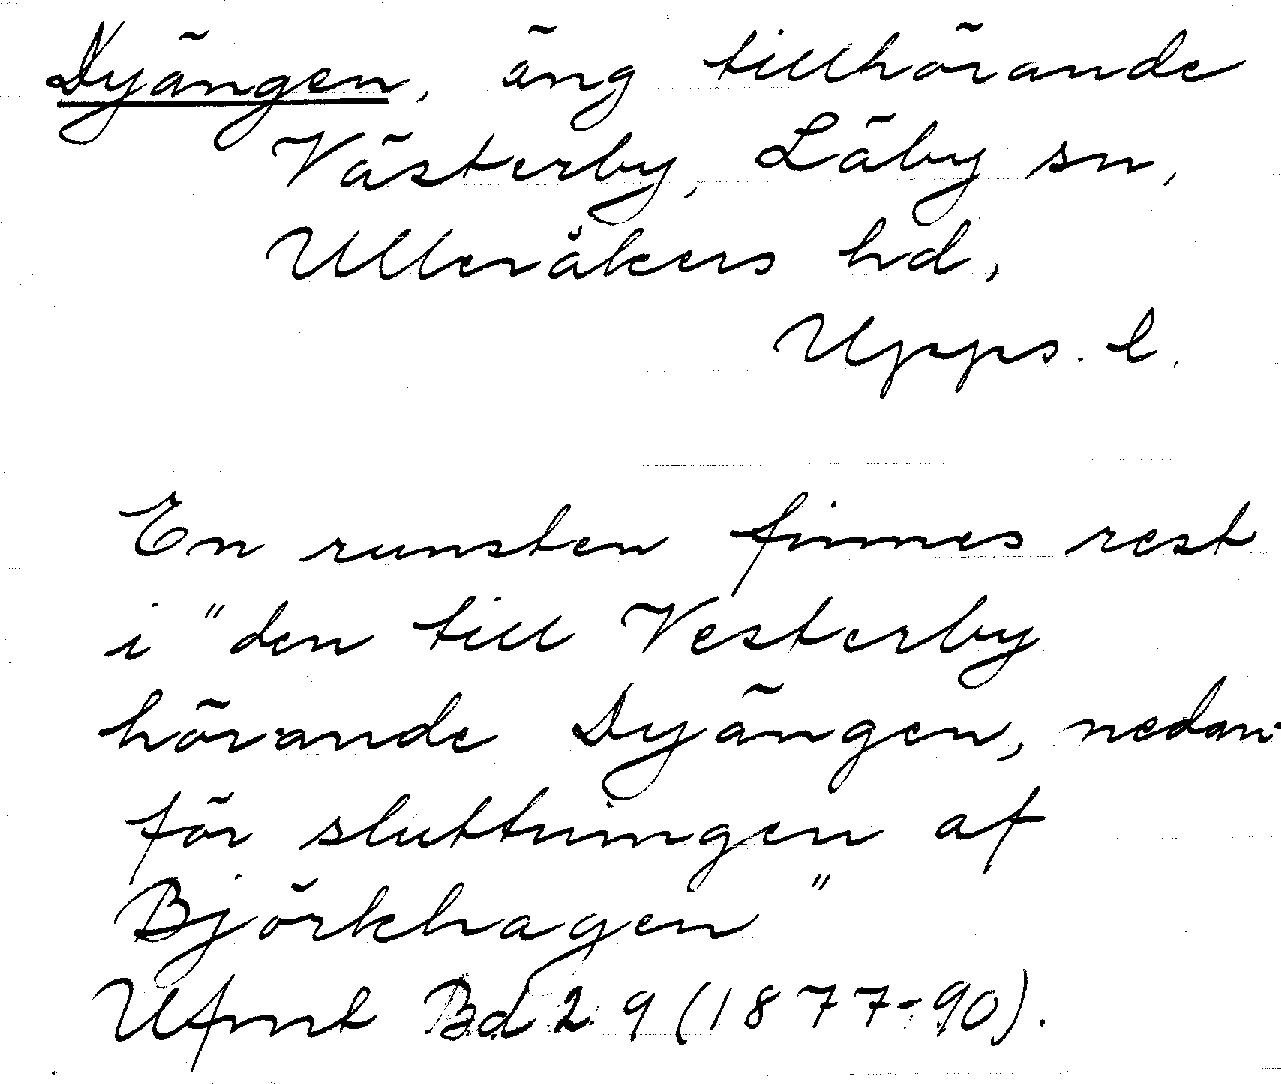 Dyängen, äng tillhörande
Västerby, Läby sn,
Ulleråkers hd,
Upps. l.
En runsten finnes rest
i "den till Vesterby
hörande Dyängen, nedan-
för sluttningen af
Björkhagen"
Ufmt Bd 2 9 (1877-90).